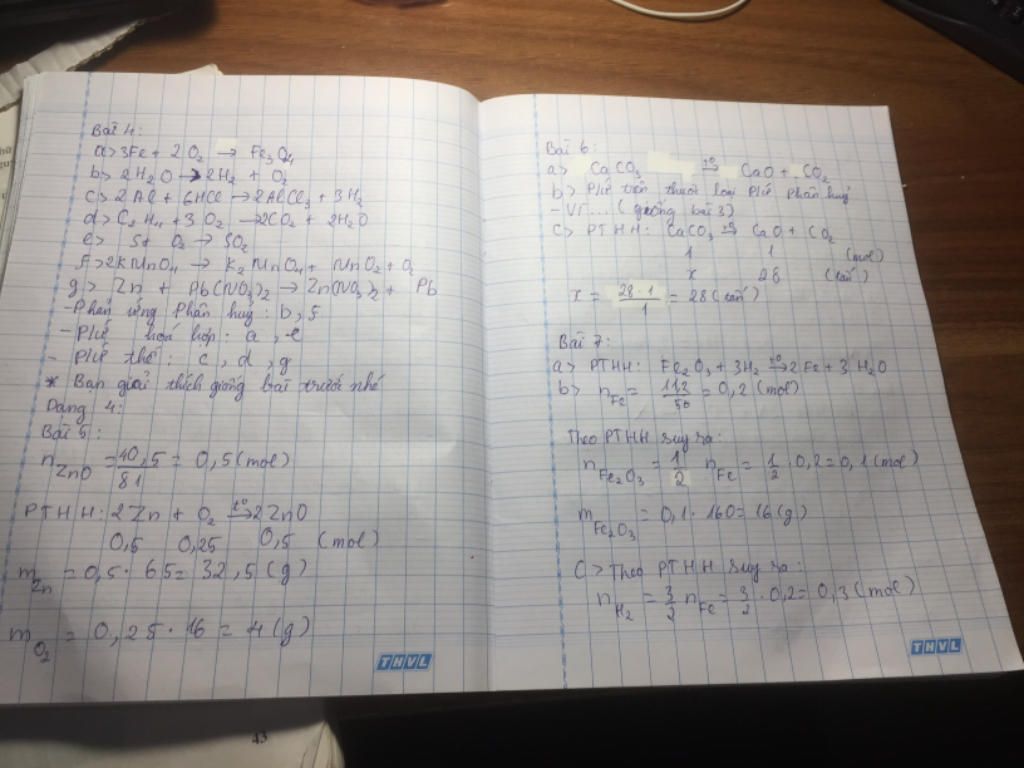 Bài 4:
a> 3Fe + 2O₂ → Fe₃O₄
b> 2H₂O → 2H₂ + O₂
c> 2Al + 6HCl → 2AlCl₃ + 3H₂
d> C₂H₄ + 3O₂ → 2CO₂ + 2H₂O
e> S + O₂ → SO₂
f> 2KMnO₄ → K₂MnO₄ + MnO₂ + O₂
g> Zn + Pb(NO₃)₂ → Zn(NO₃)₂ + Pb
- Phản ứng phân huỷ: b, f
- P/ứ hoá hợp: a, e
- P/ứ thế: c, d, g
* Bạn giải thích giống bài trước nhé
Dạng 4:
Bài 5:
n_ZnO = 40,5/81 = 0,5 (mol)
PTHH: 2Zn + O₂ →(t°) 2ZnO
0,5 0,25 0,5 (mol)
m_Zn = 0,5 · 65 = 32,5 (g)
m_O₂ = 0,25 · 16 = 4 (g)
THVL
Bài 6
a> CaCO₃ →(t°) CaO + CO₂
b> P/ứ trên thuộc loại P/ứ phân huỷ
- Vì... (giống bài 3)
c> PTHH: CaCO₃ →(t°) CaO + CO₂
1 1 (mol)
x 28 (tấn)
x = 28·1/1 = 28 (tấn)
Bài 7:
a> PTHH: Fe₂O₃ + 3H₂ →(t°) 2Fe + 3H₂O
b> n_Fe = 11,2/56 = 0,2 (mol)
Theo PTHH suy ra:
n_Fe₂O₃ = 1/2 n_Fe = 1/2 · 0,2 = 0,1 (mol)
m_Fe₂O₃ = 0,1 · 160 = 16 (g)
c> Theo PTHH suy ra:
n_H₂ = 3/2 n_Fe = 3/2 · 0,2 = 0,3 (mol)
THVL
43